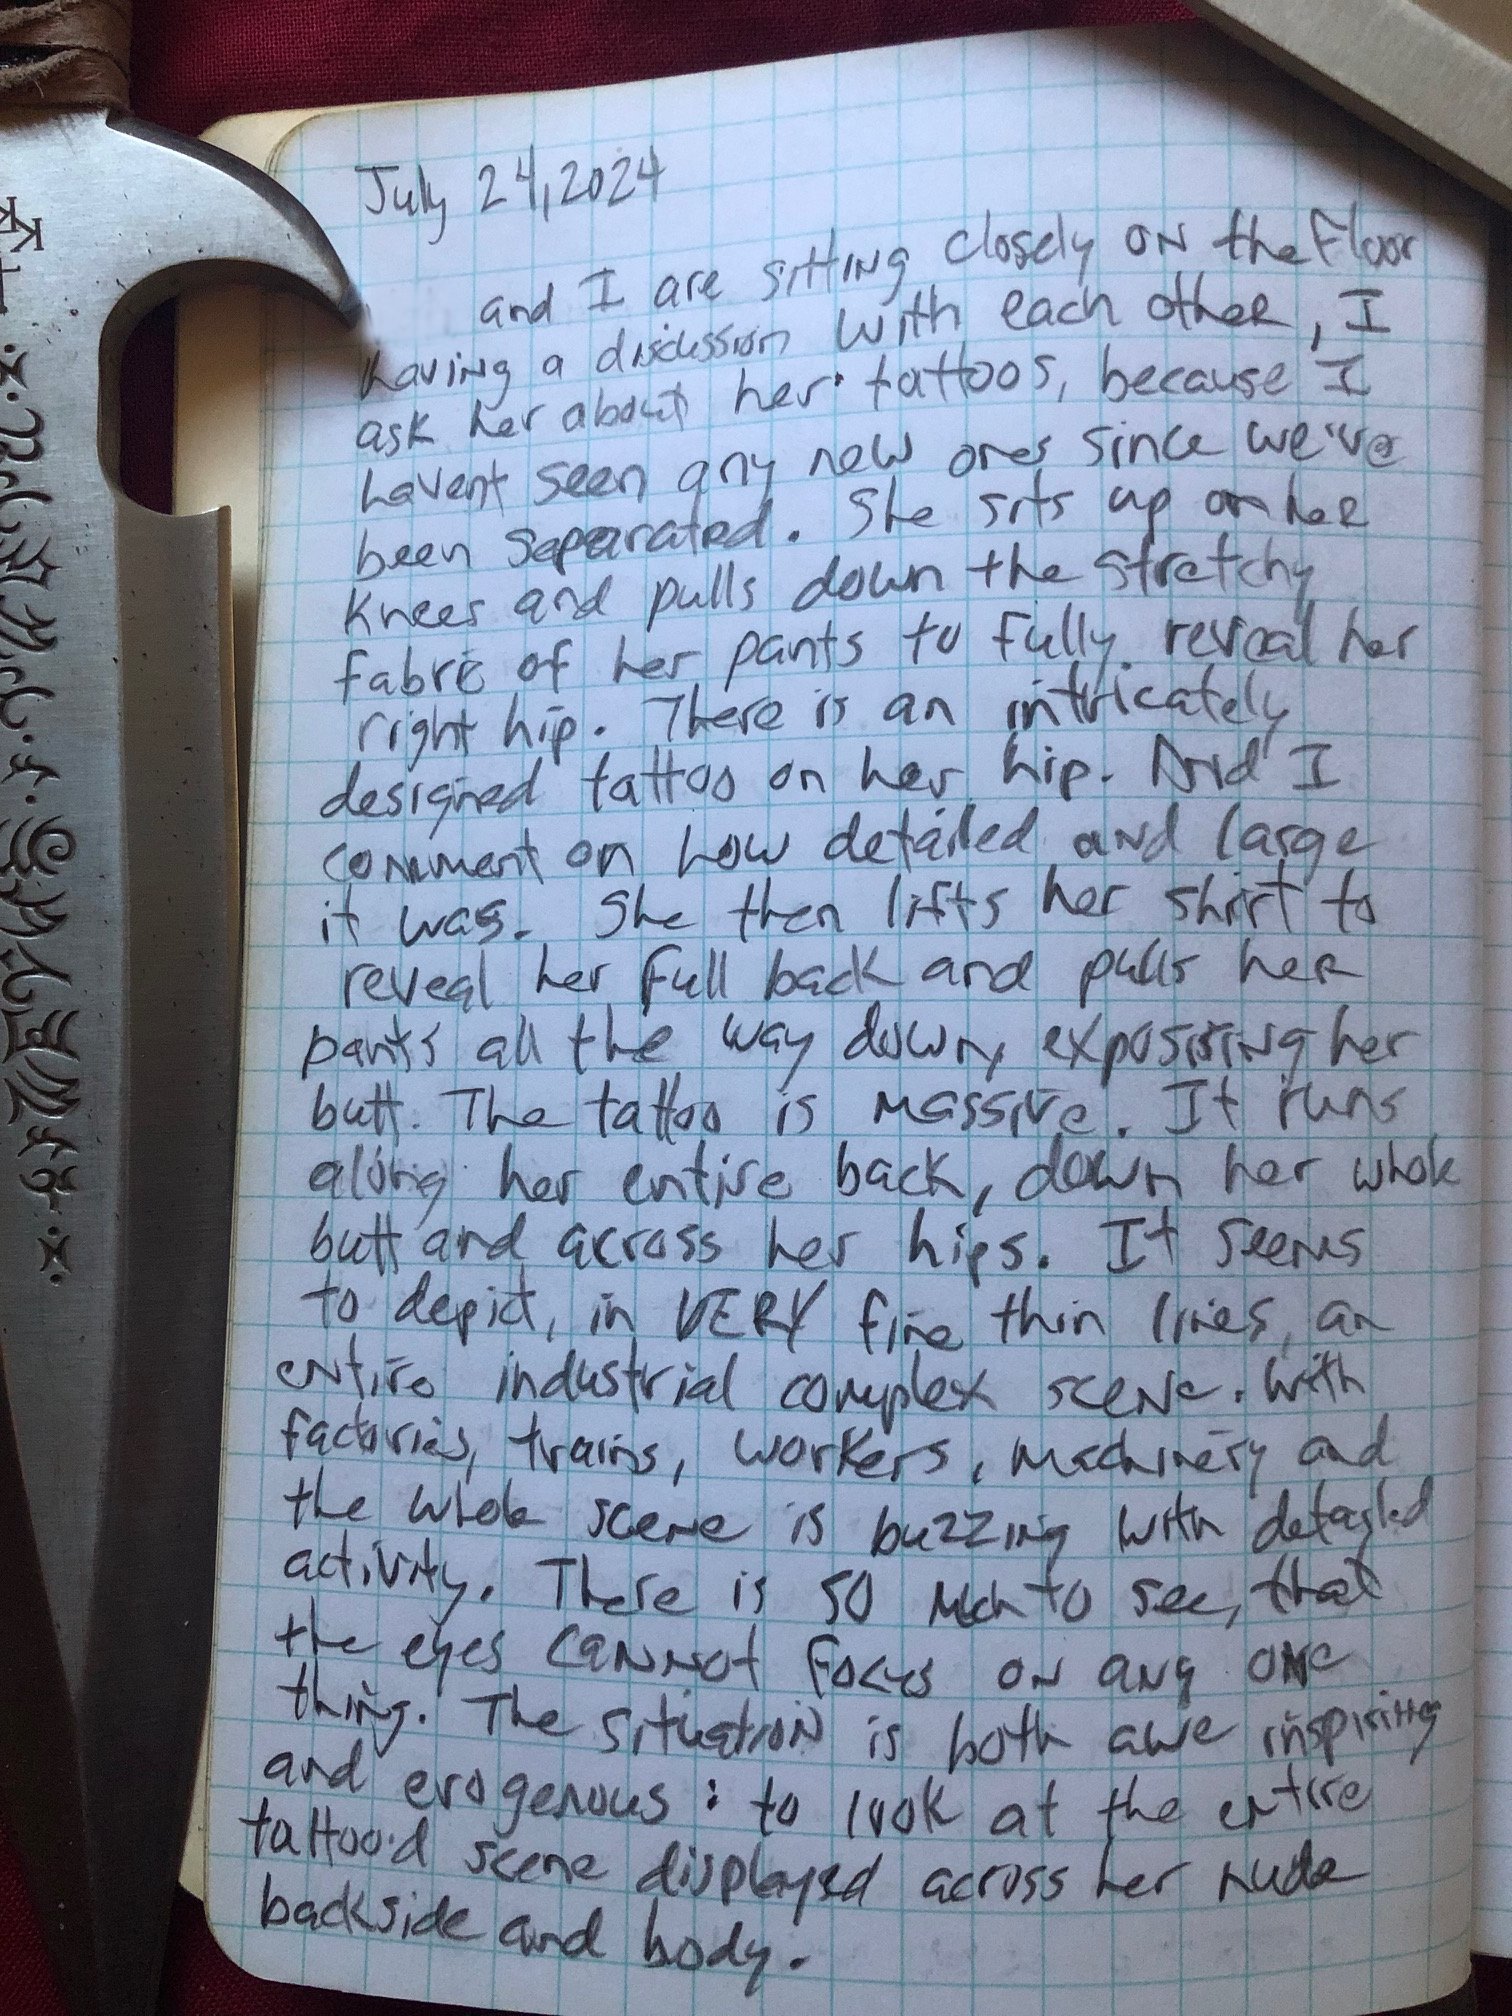 July 24, 2024
and I are sitting closely on the floor
having a discussion with each other, I
ask her about her tattoos, because I
havent seen any new ones since we've
been separated. She sits up on her
knees and pulls down the stretchy
fabric of her pants to fully reveal her
right hip. There is an intricately
designed tattoo on her hip. And I
comment on how detailed and large
it was. She then lifts her shirt to
reveal her full back and pulls her
pants all the way down, exposising her
butt. The tattoo is massive. It runs
along her entire back, down her whole
butt and across her hips. It seems
to depict, in VERY fine thin lines, an
entire industrial complex scene. With
factories, trains, workers, machinery and
the whole scene is buzzing with detailed
activity. There is so much to see, that
the eyes cannot focus on any one
thing. The situation is both awe inspiring
and erogenous: to look at the entire
tattoo'd scene displayed across her nude
backside and body.